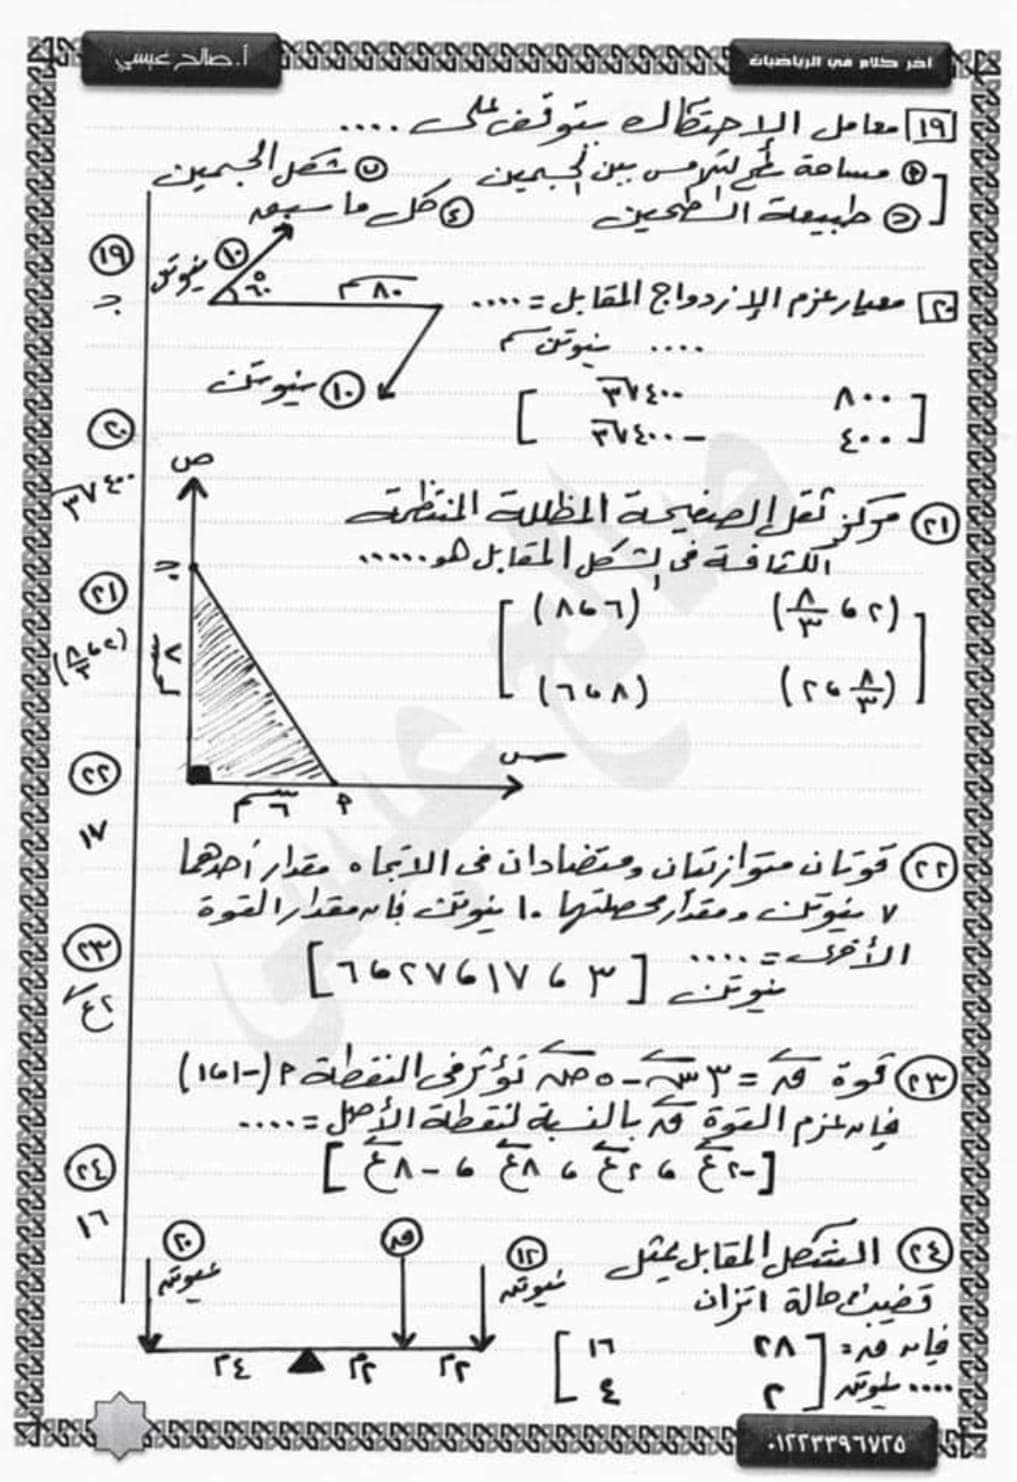 أ. صالح عيسي
اخر كلام في الرياضيات
١٩ معامل الاحتكاك يتوقف على ....
P مساحة سطح التلامس بين الجسمين ب شكل الجسمين
ج طبيعة السطحين ء كل ما سبق
١٩
ج
٢٠ معيار عزم الازدواج المقابل = ....
.... نيوتن سم
١٠ نيوتن
٦٠°
٨٠ سم
١٠ نيوتن
[ ٨٠٠ ٤٠٠√٣
٤٠٠ -٤٠٠√٣ ]
٢٠
٤٠٠√٣
٢١ مركز ثقل الصفيحة المظللة المنتظمة
الكثافة في الشكل المقابل هو .....
[ (٢ ، ٨/٣) (٦ ، ٨)
(٨/٣ ، ٢) (٨ ، ٦) ]
ص
ج
٨ سم
٦ سم
P
س
٢١
(٢ ، ٨/٣)
٢٢ قوتان متوازيتان ومتضادتان في الاتجاه مقدار أحدهما
٧ نيوتن ومقدار محصلتها ١٠ نيوتن فإن مقدار القوة
الأخرى = ....
نيوتن [ ٣ ، ١٧ ، ٢٧ ، ٦ ]
٢٢
١٧
٢٣ قوة ق = ٣ س - ٥ ص تؤثر في النقطة P (-١ ، ١)
فإن عزم القوة ق بالنسبة لنقطة الأصل = ....
[ -٢ع ، ٢ع ، ٨ع ، -٨ع ]
٢٣
٢ع
٢٤ الشكل المقابل يمثل
قضيب في حالة اتزان
فإن ق = [ ٢٨ ١٦
.... نيوتن ٢ ٤ ]
٢٠ نيوتن
ق
١٢ نيوتن
٤م ٢م ٢م
٢٤
١٦
٠١٢٢٣٣٩٦٧٢٥